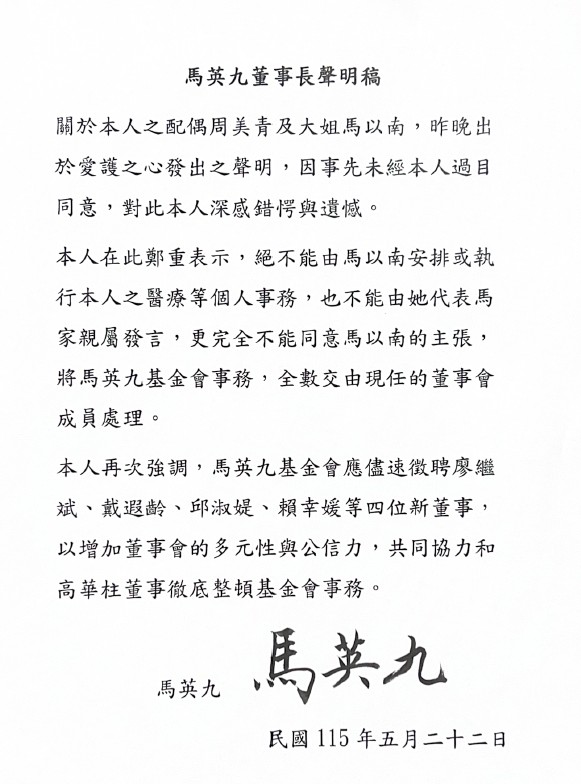 馬英九董事長聲明稿
關於本人之配偶周美青及大姐馬以南，昨晚出
於愛護之心發出之聲明，因事先未經本人過目
同意，對此本人深感錯愕與遺憾。
本人在此鄭重表示，絕不能由馬以南安排或執
行本人之醫療等個人事務，也不能由她代表馬
家親屬發言，更完全不能同意馬以南的主張，
將馬英九基金會事務，全數交由現任的董事會
成員處理。
本人再次強調，馬英九基金會應儘速徵聘廖繼
斌、戴遐齡、邱淑媞、賴幸媛等四位新董事，
以增加董事會的多元性與公信力，共同協力和
高華柱董事徹底整頓基金會事務。
馬英九 馬英九
民國 115 年五月二十二日